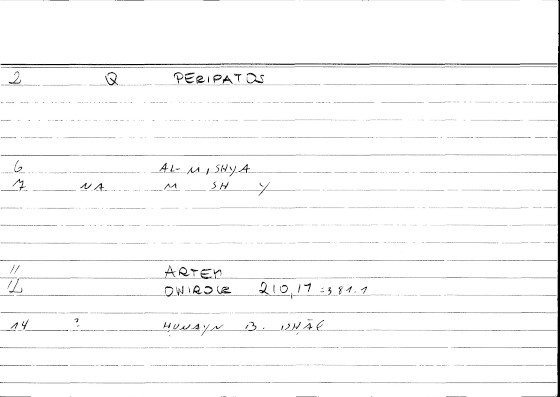 2 Q PERIPATOS
6 AL-MISHYA
7 NA M SH Y
11 ARTEM
12 210,17 =381.1
14 ? HUNAYN B. ISHĀQ